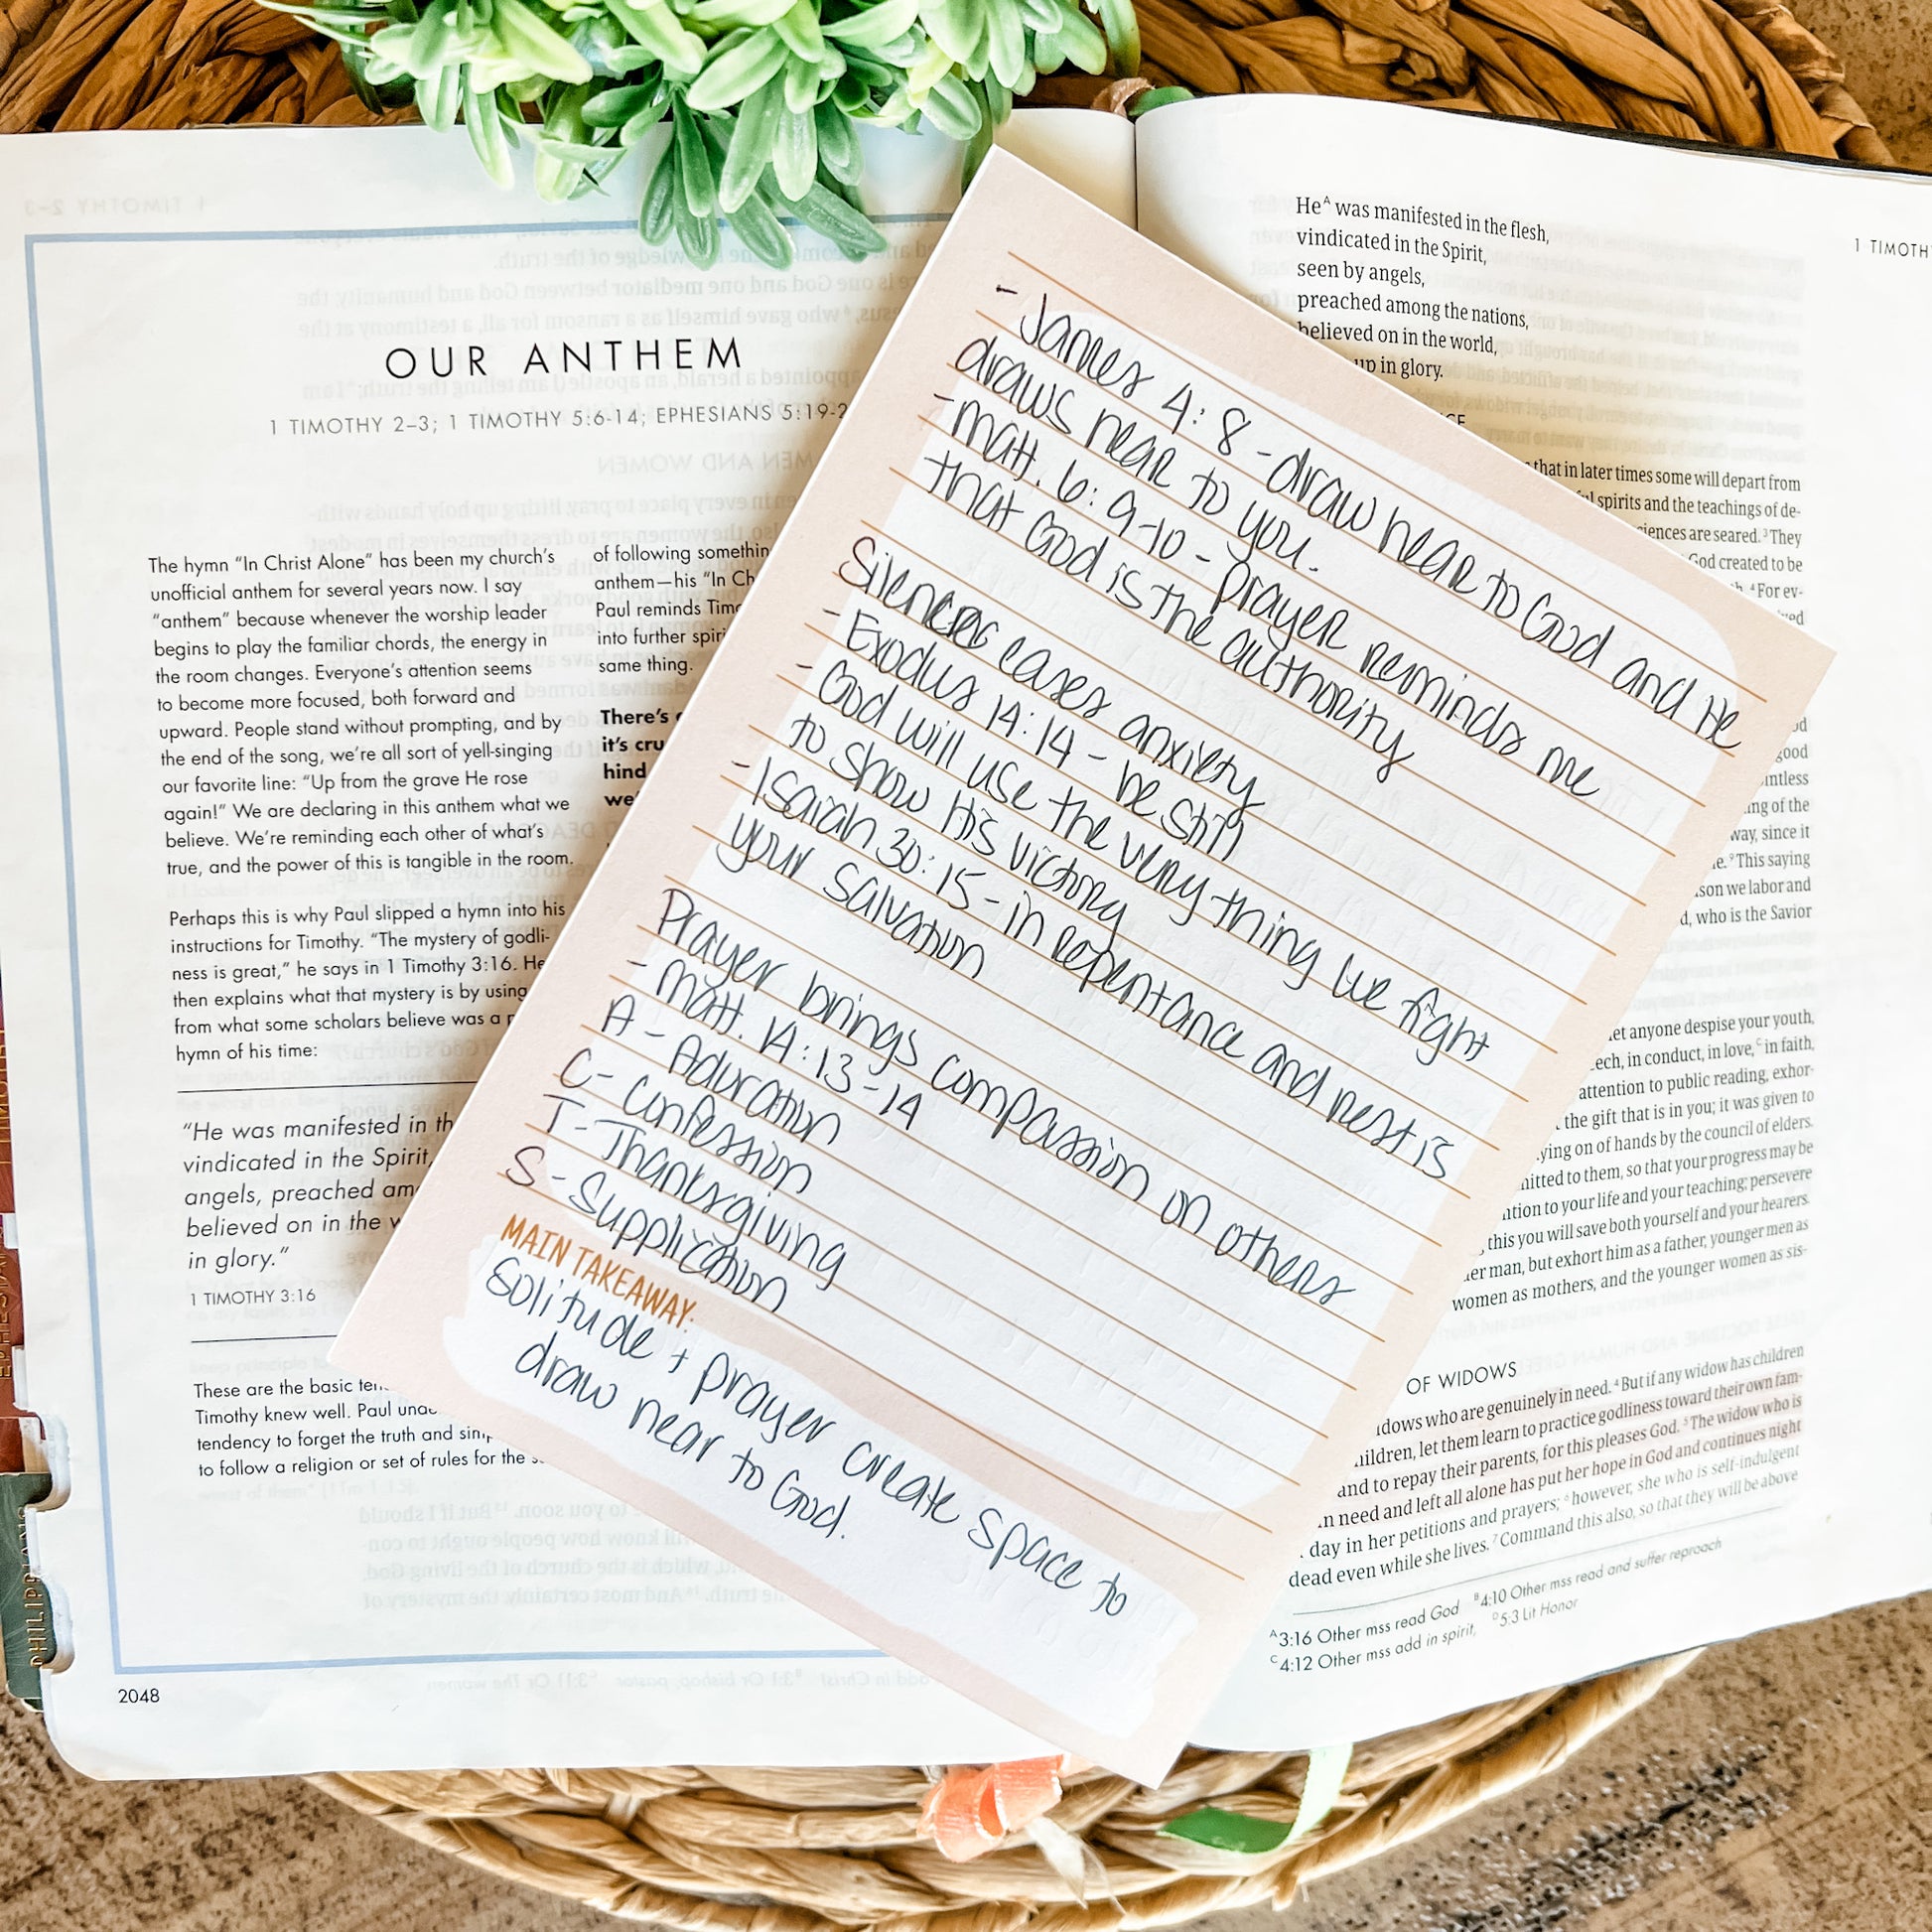 OUR ANTHEM
1 TIMOTHY 2–3; 1 TIMOTHY 5:6-14; EPHESIANS 5:19-2
The hymn “In Christ Alone” has been my church’s
unofficial anthem for several years now. I say
“anthem” because whenever the worship leader
begins to play the familiar chords, the energy in
the room changes. Everyone’s attention seems
to become more focused, both forward and
upward. People stand without prompting, and by
the end of the song, we’re all sort of yell-singing
our favorite line: “Up from the grave He rose
again!” We are declaring in this anthem what we
believe. We’re reminding each other of what’s
true, and the power of this is tangible in the room.
Perhaps this is why Paul slipped a hymn into his
instructions for Timothy. “The mystery of godli-
ness is great,” he says in 1 Timothy 3:16. He
then explains what that mystery is by using
from what some scholars believe was a
hymn of his time:
“He was manifested in
vindicated in the Spirit,
angels, preached
believed on in the
in glory.”
1 TIMOTHY 3:16
These are the basic
Timothy knew well. Paul
tendency to forget the truth and
to follow a religion or set of rules for the
2048
of following
anthem—his “In
Paul reminds
into further
same thing.
There’s
it’s
hind
- James 4:8 - draw near to God and He
draws near to you.
- Matt. 6:9-10 - Prayer reminds me
that God is the authority
Silence eases anxiety
- Exodus 14:14 - be still
- God will use the very thing we fight
to show His victory
- Isaiah 30:15 - in repentance and rest is
your salvation
Prayer brings compassion on others
- Matt. 14:13-14
A - Adoration
C - Confession
T - Thanksgiving
S - Supplication
MAIN TAKEAWAY:
Solitude + prayer create space to
draw near to God.
1 TIMOTH
He^A was manifested in the flesh,
vindicated in the Spirit,
seen by angels,
preached among the nations,
believed on in the world,
up in glory.
that in later times some will depart from
spirits and the teachings of de-
are seared. ³They
God created to be
⁴For ev-
good
ing of the
way, since it
⁹This saying
we labor and
who is the Savior
let anyone despise your youth,
in conduct, in love,^C in faith,
attention to public reading, exhor-
the gift that is in you; it was given to
on of hands by the council of elders.
to them, so that your progress may be
to your life and your teaching; persevere
this you will save both yourself and your hearers.
man, but exhort him as a father, younger men as
women as mothers, and the younger women as sis-
OF WIDOWS
who are genuinely in need. ⁴But if any widow has children
let them learn to practice godliness toward their own fam-
and to repay their parents, for this pleases God. ⁵The widow who is
need and left all alone has put her hope in God and continues night
day in her petitions and prayers; ⁶however, she who is self-indulgent
dead even while she lives. ⁷Command this also, so that they will be above
^A3:16 Other mss read God ^B4:10 Other mss read and suffer reproach
^C4:12 Other mss add in spirit, ^D5:3 Lit Honor
PHILIPPIANS